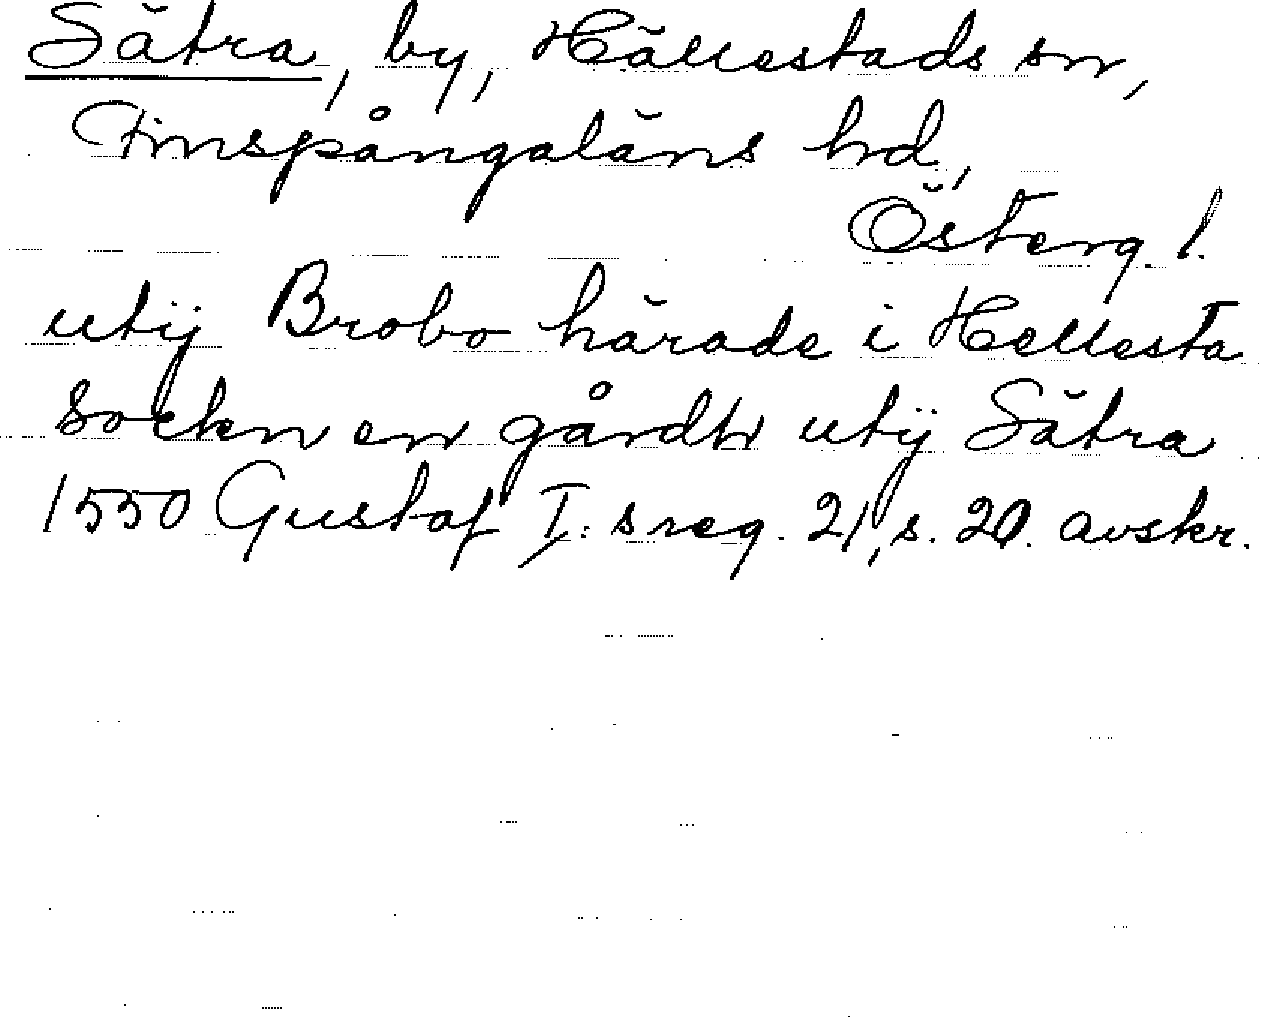 Sätra, by, Hällestads sn,
Finspångaläns hd,
Österg. l.
utij Brobo härade i Hellesta
sockn en gårdh utij Sätra
1550 Gustaf I:s reg. 21, s. 20. avskr.